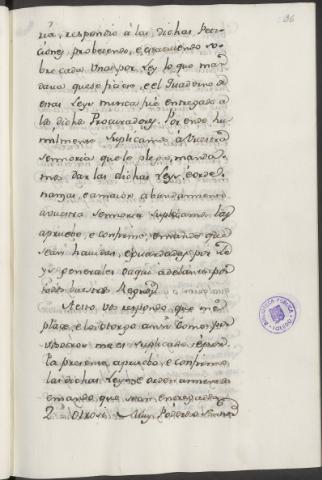 96
ria, respondio a las dichas Peti-
ciones, probeyendo, e estatuiendo so-
bre cada Una por Ley lo que man-
dava que se hiciese, e el Quaderno de
estas Leyes nunca fue entregado a
los dichos Procuradores. Por ende hu-
milmente Suplicamos à Vuestra
Señoria que le plega, mandar-
nos dar las dichas Leyes è orde-
nanzas, e a maior abundamiento
a vuestra Señoria Suplicamos las
apruebe, e confirme, e mande que
sean havidas, e guardadas por Le-
yes generales daqui adelante por
todos vuestros Regnos.
A esto Vos respondo, que me
place, e lo otorgo ansi como por
vosotros me es suplicado, e por
la presente apruebo, e confirmo
las dichas Leyes, e ordenamientos
e mando, que sean entregadas
2.ª Otrosi Muy Poderoso Señor
BIBLIOTECA PUBLICA